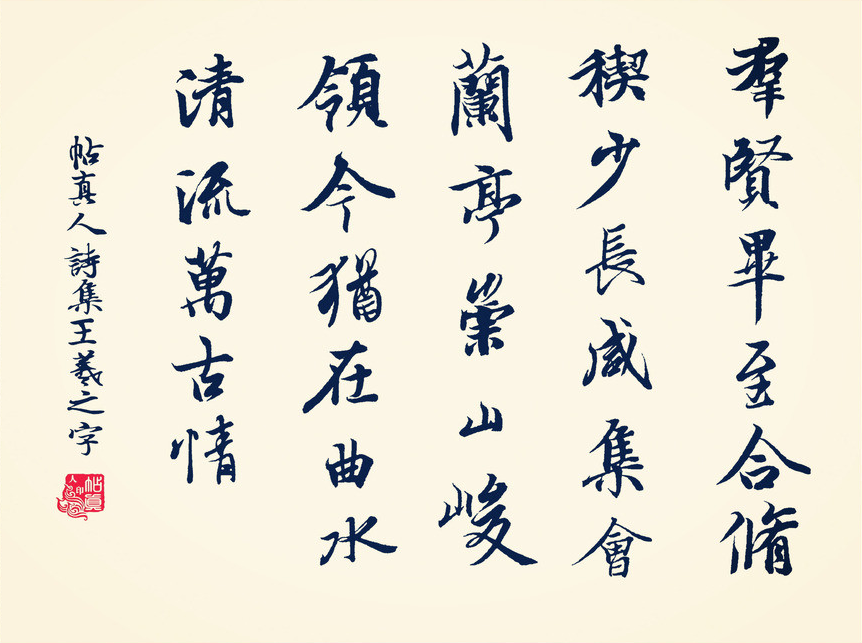 羣賢畢至合脩
稧少長咸集會
蘭亭崇山峻
領今猶在曲水
清流萬古情
帖真人詩集王羲之字
帖真人印